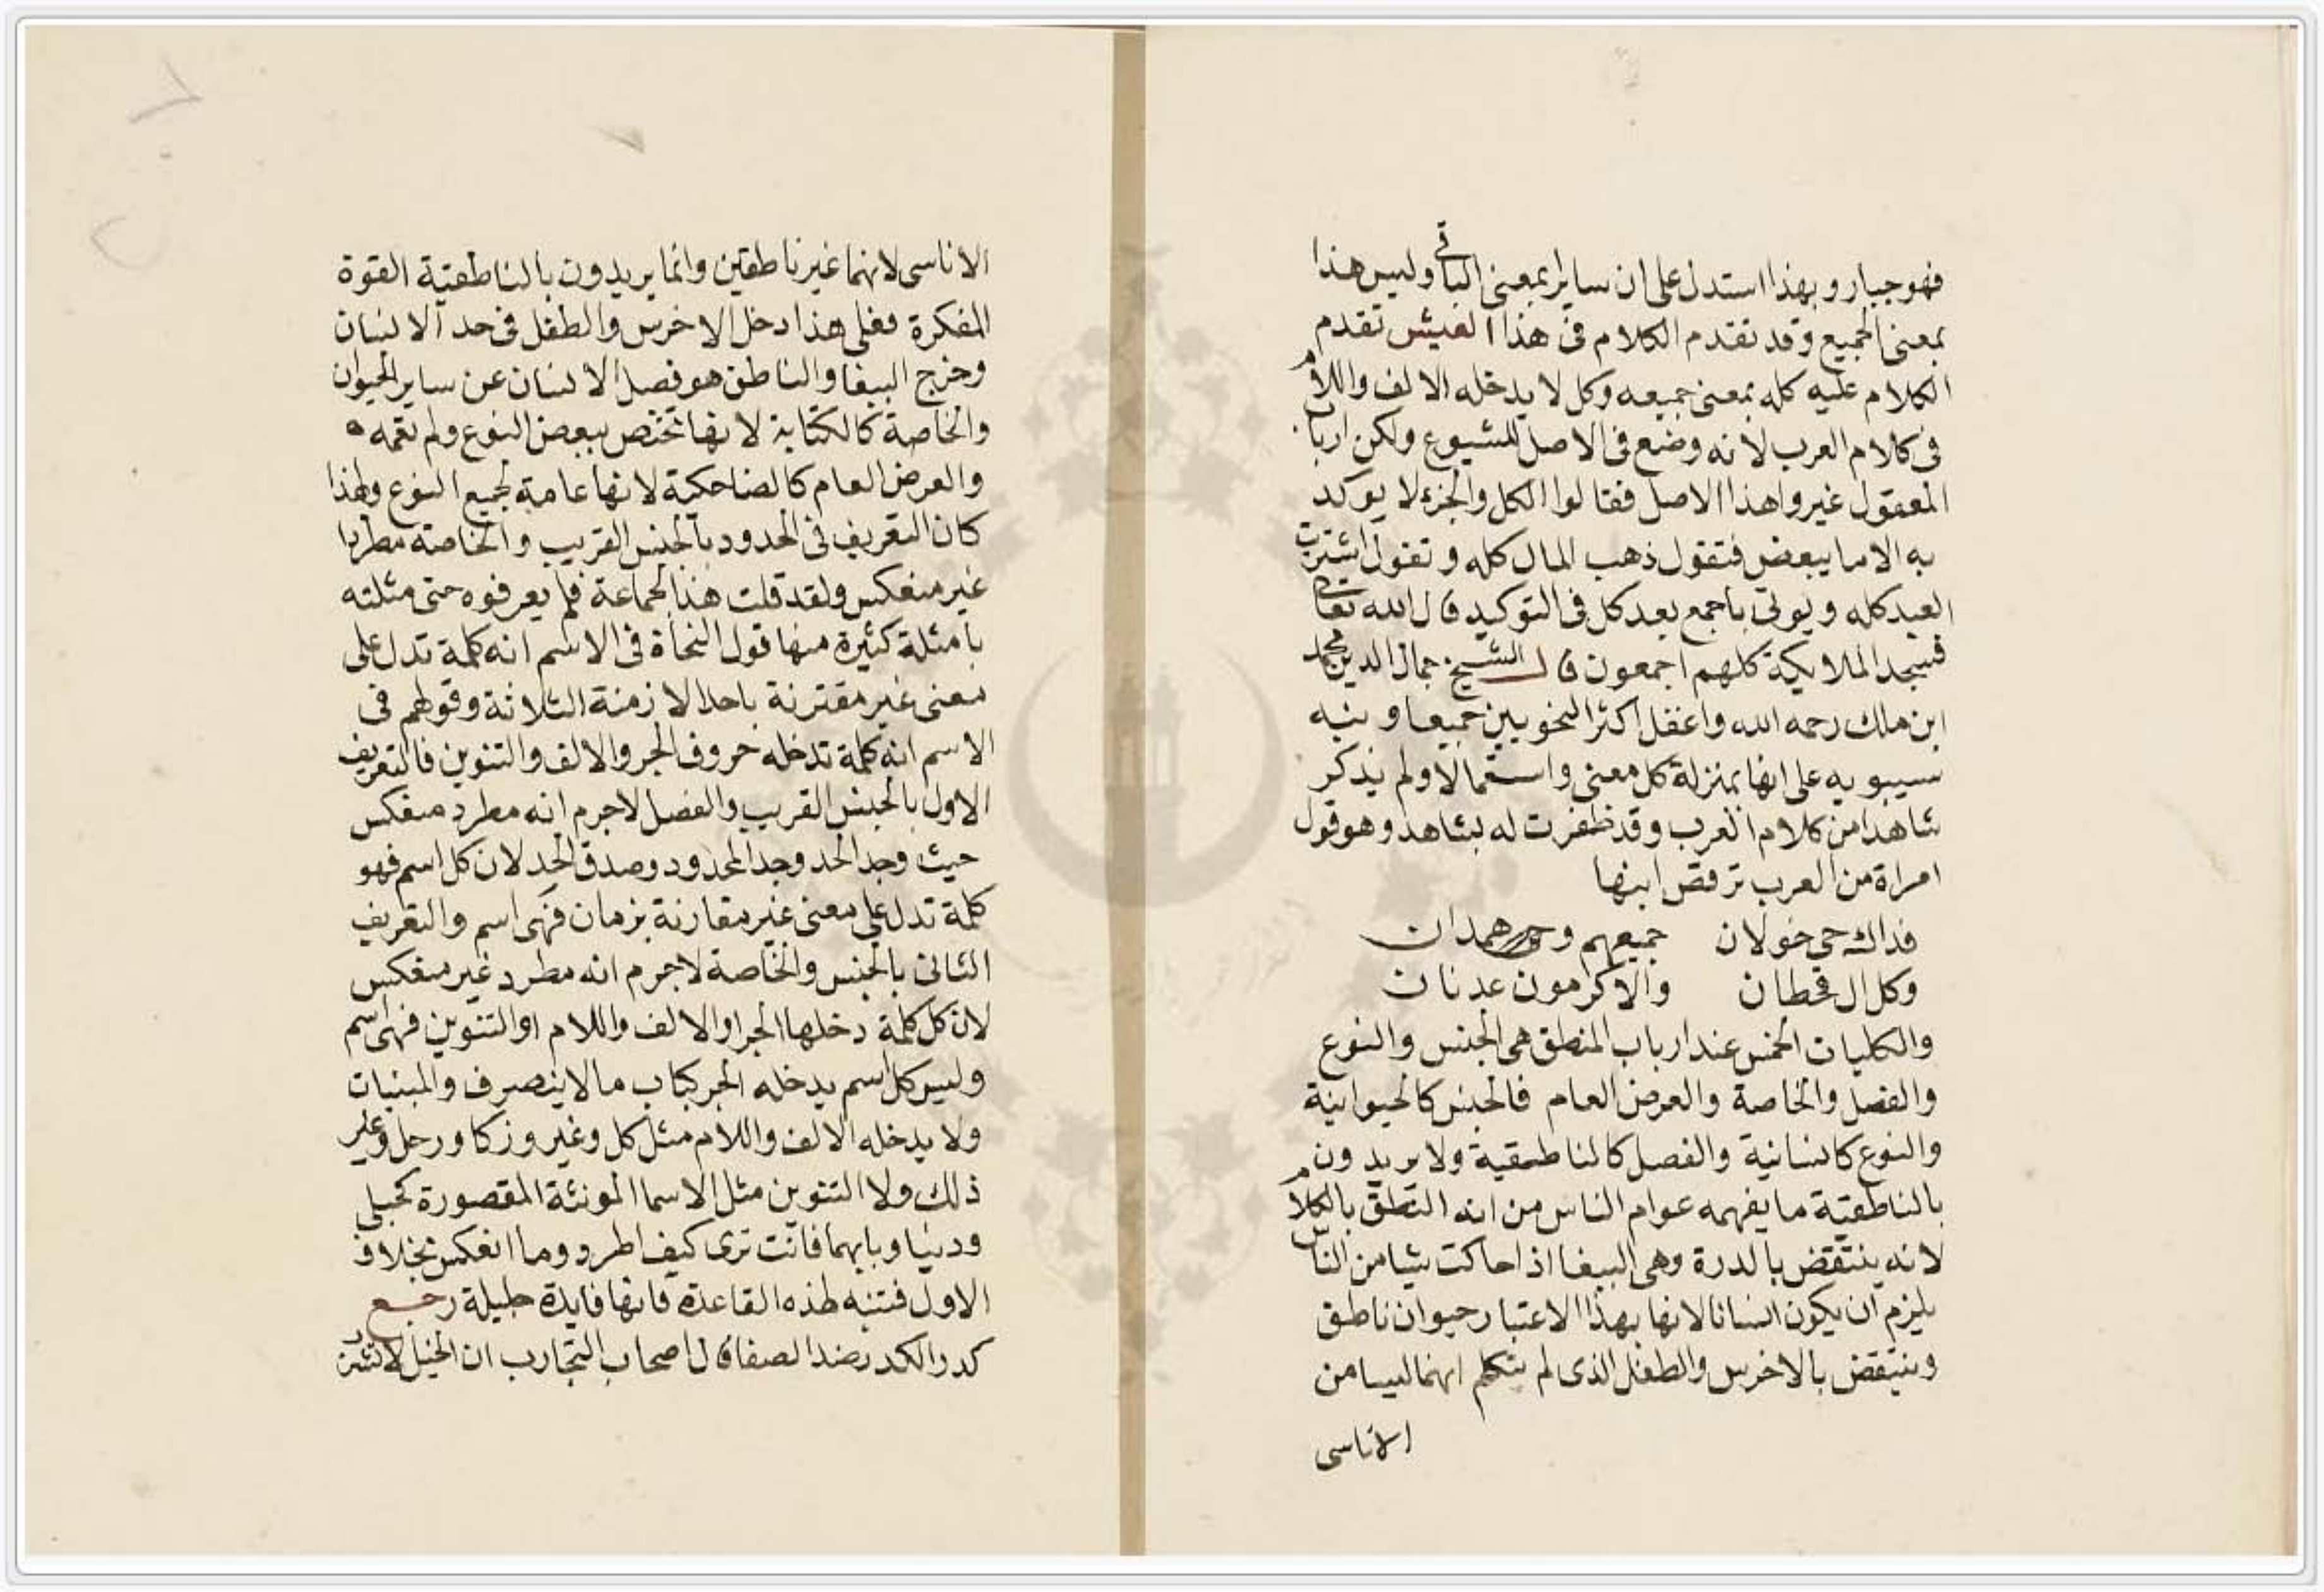 فهو جبار وبهذا استدل على ان سايرا بمعنى الباقى وليس هذا
بمعنى الجميع وقد تقدم الكلام فى هذا العيش تقدم
الكلام عليه كله بمعنى جميعه وكل لا يدخله الالف واللام
فى كلام العرب لانه وضع فى الاصل للشيوع ولكن ارباب
المعقول غيروا هذا الاصل فقالوا الكل والجزء لا يوكد
به الا ما يبعض فتقول ذهب المال كله وتقول اشتريت
العبد كله ويوتى باجمع بعد كل فى التوكيد قال الله تعالى
فسجد الملايكة كلهم اجمعون قال الشيخ جمال الدين محمد
ابن ملك رحمه الله واغفل اكثر النحويين جميعا ونبه
سيبويه على انها بمنزلة كل معنى واستعمالا ولم يذكر
شاهدا من كلام العرب وقد ظفرت له بشاهد وهو قول
امراة من العرب ترقص ابنها
فداك حى خولان جميعهم وهمدان
وكل ال قحطان والاكرمون عدنان
والكليات الخمس عند ارباب المنطق هى الجنس والنوع
والفصل والخاصة والعرض العام فالجنس كالحيوانية
والنوع كانسانية والفصل كالناطقية ولا يريدون
بالناطقية ما يفهمه عوام الناس من انه النطق بالكلام
لانه ينتقض بالدرة وهى الببغا اذا حاكت شيا من الناس
يلزم ان يكون انسانا لانها بهذا الاعتبار حيوان ناطق
وينتقض بالاخرس والطفل الذى لم يتكلم انهما ليسا من
الاناسى
الاناسى لانهما غير ناطقين وانما يريدون بالناطقية القوة
المفكرة فعلى هذا دخل الاخرس والطفل فى حد الانسان
وخرج الببغا والناطق هو فصل الانسان عن ساير الحيوان
والخاصة كالكتابة لانها تختص ببعض النوع ولم تعمه
والعرض العام كالضاحكية لانها عامة لجميع النوع ولهذا
كان التعريف فى الحدود بالجنس القريب والخاصة مطردا
غير منعكس ولقد قلت هذا لجماعة فلم يعرفوه حتى مثلته
بامثلة كثيرة منها قول النحاة فى الاسم انه كلمة تدل على
معنى غير مقترنة باحد الازمنة الثلاثة وقولهم فى
الاسم انه كلمة تدخله حروف الجر والالف والتنوين فالتعريف
الاول بالجنس القريب والفصل لا جرم انه مطرد منعكس
حيث وجد الحد وجد المحدود وصدق الحد لان كل اسم فهو
كلمة تدل على معنى غير مقارنة بزمان فهى اسم والتعريف
الثانى بالجنس والخاصة لا جرم انه مطرد غير منعكس
لان كل كلمة دخلها الجر او الالف واللام او التنوين فهى اسم
وليس كل اسم يدخله الجر كباب ما لا ينصرف والمبنيات
ولا يدخله الالف واللام مثل كل وغير وزكا ورحل وغير
ذلك ولا التنوين مثل الاسما المونثة المقصورة كحبلى
ودنيا وبابهما فانت ترى كيف اطرد وما انعكس بخلاف
الاول فتنبه لهذه القاعدة فانها فايدة جليلة رجع
كدر الكدر ضد الصفا قال اصحاب التجارب ان الخيل لا تشرب